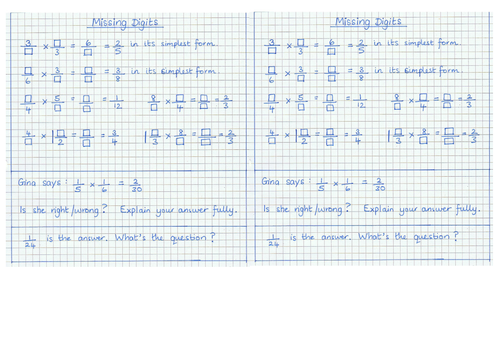 Missing Digits
3/□ × □/3 = 6/□ = 2/5 in its simplest form.
□/6 × 3/□ = □/□ = 3/8 in its simplest form.
□/4 × 5/□ = □/□ = 1/12 8/□ × □/4 = □/□ = 2/3
4/□ × 1 □/2 = □/□ = 3/4 1 □/3 × 8/□ = □/□ = 2/3
Gina says: 1/5 × 1/6 = 2/20
Is she right/wrong? Explain your answer fully.
1/24 is the answer. What's the question?
Missing Digits
3/□ × □/3 = 6/□ = 2/5 in its simplest form.
□/6 × 3/□ = □/□ = 3/8 in its simplest form.
□/4 × 5/□ = □/□ = 1/12 8/□ × □/4 = □/□ = 2/3
4/□ × 1 □/2 = □/□ = 3/4 1 □/3 × 8/□ = □/□ = 2/3
Gina says: 1/5 × 1/6 = 2/20
Is she right/wrong? Explain your answer fully.
1/24 is the answer. What's the question?